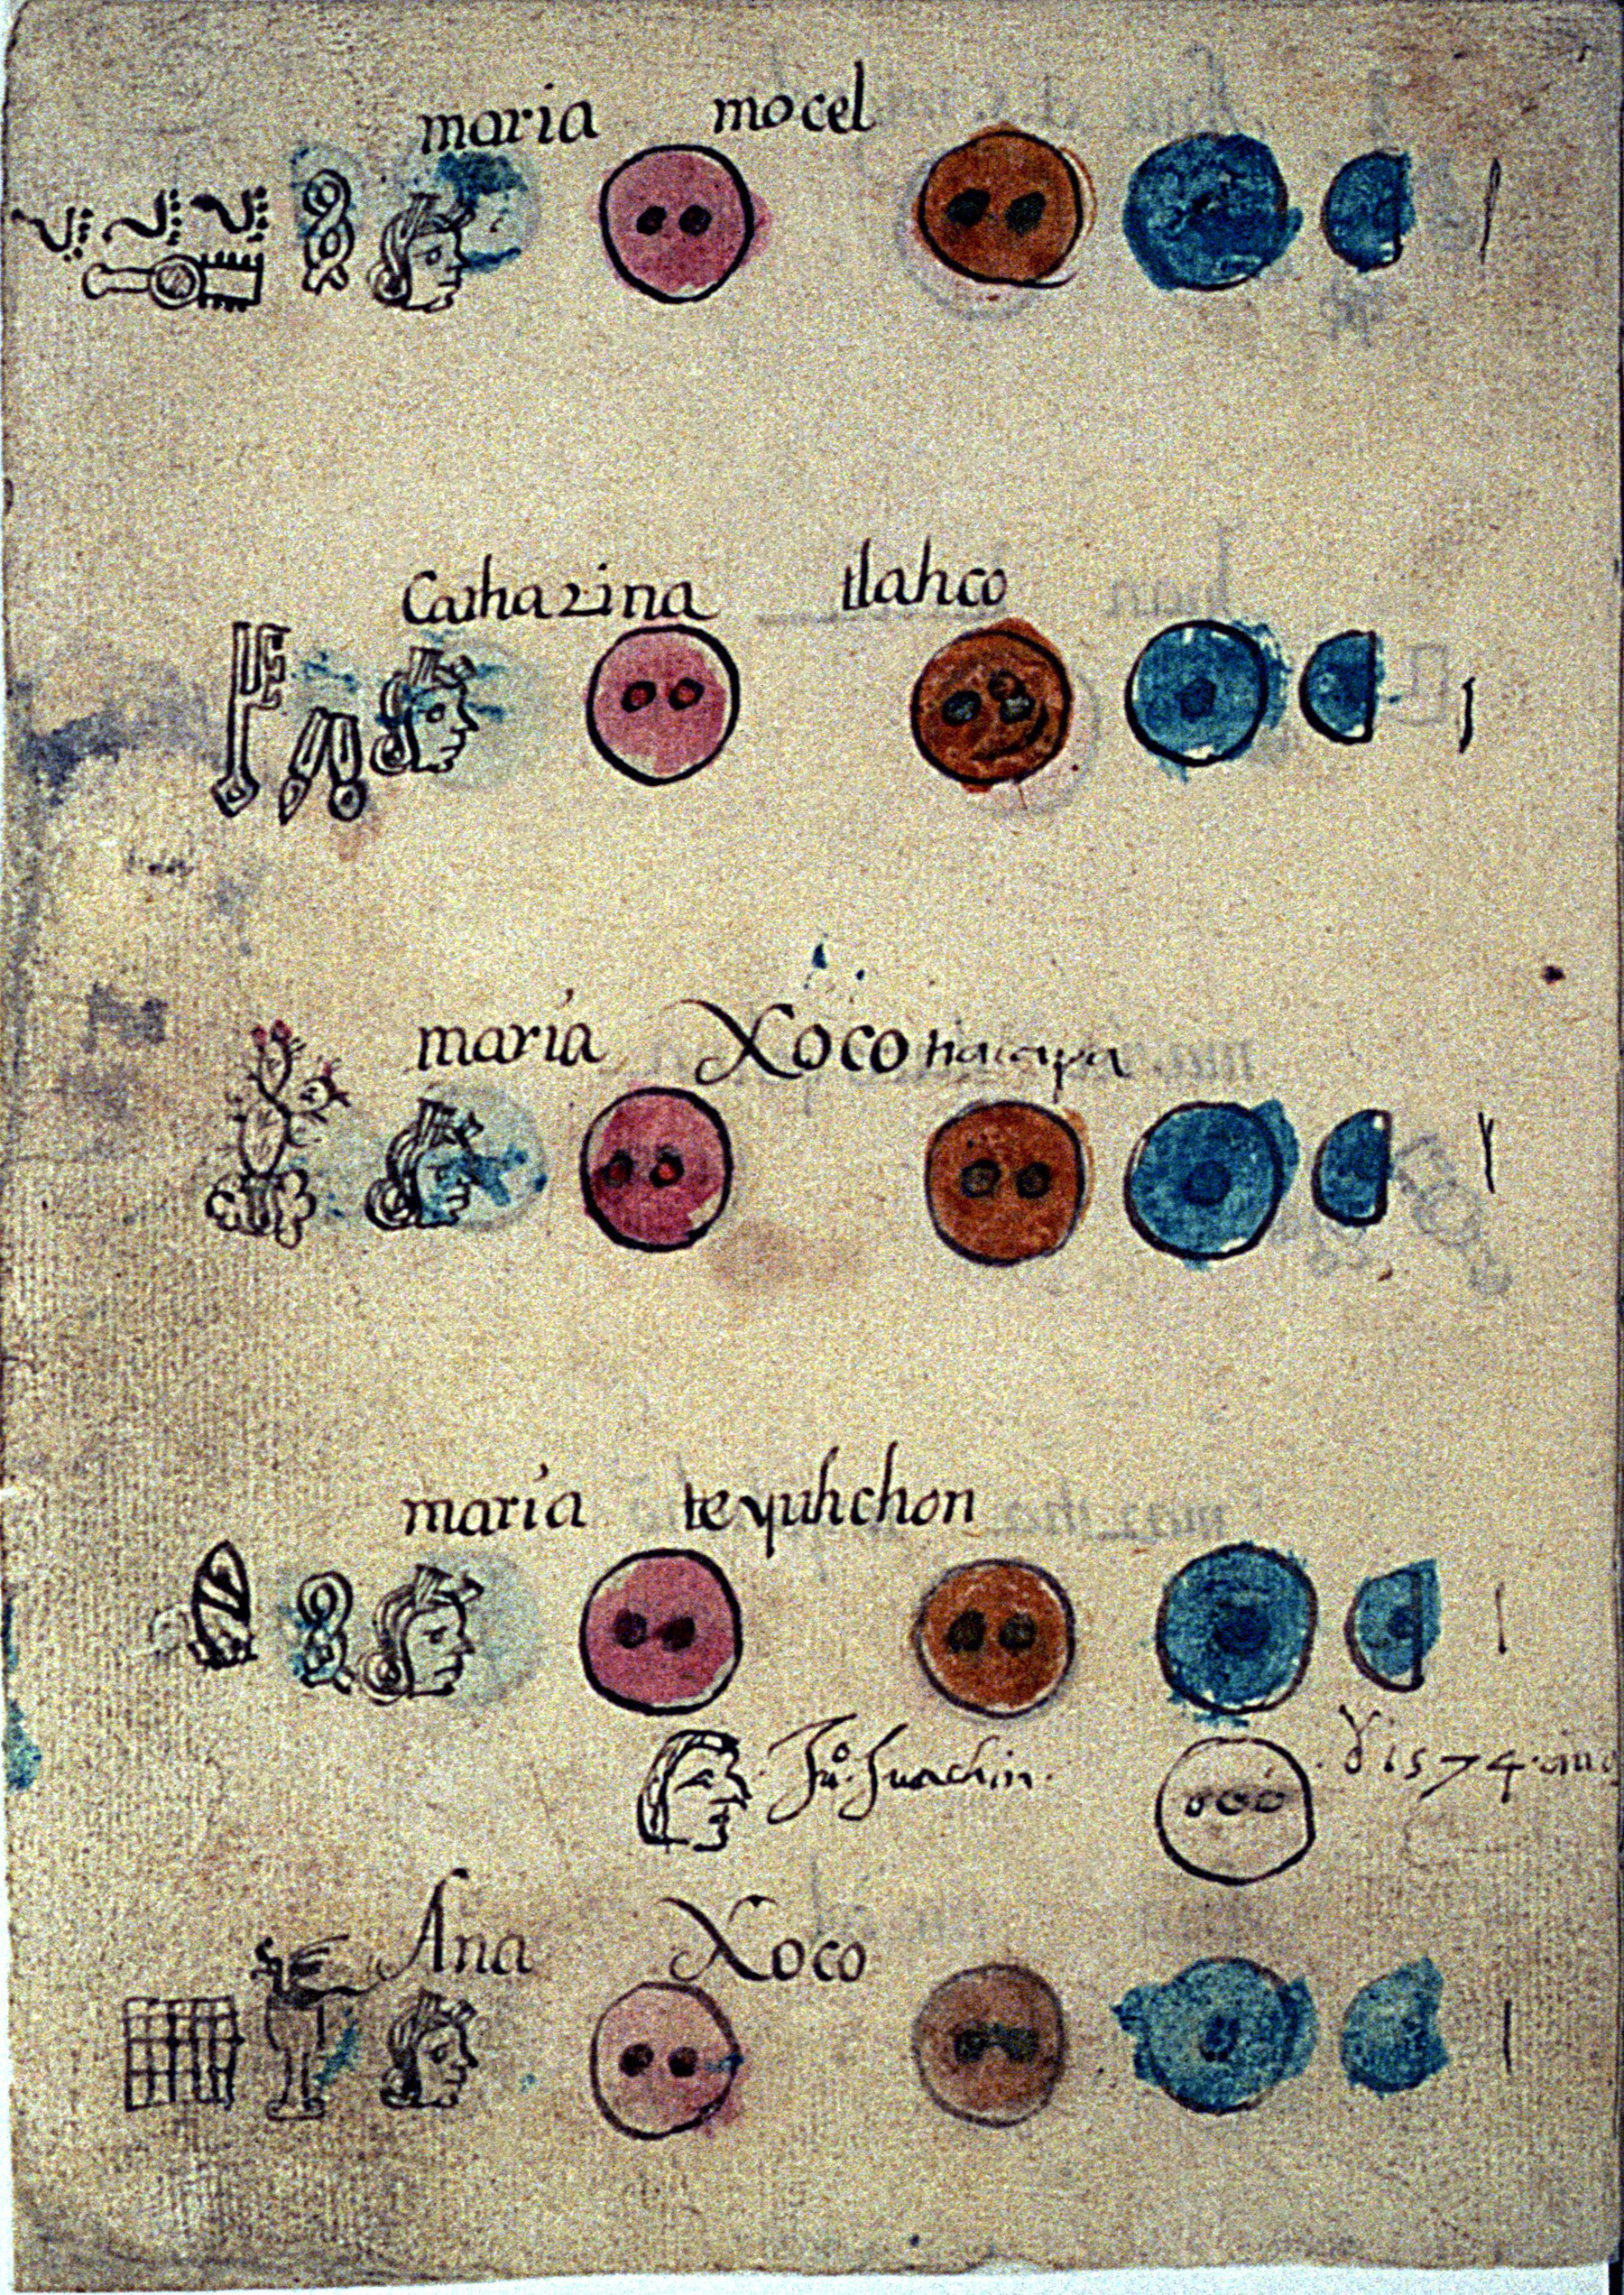 maria mocel
Catharina tlahco
maría Xoco
maría teyuhchon
Juº. Juachin.
1574
Ana Xoco